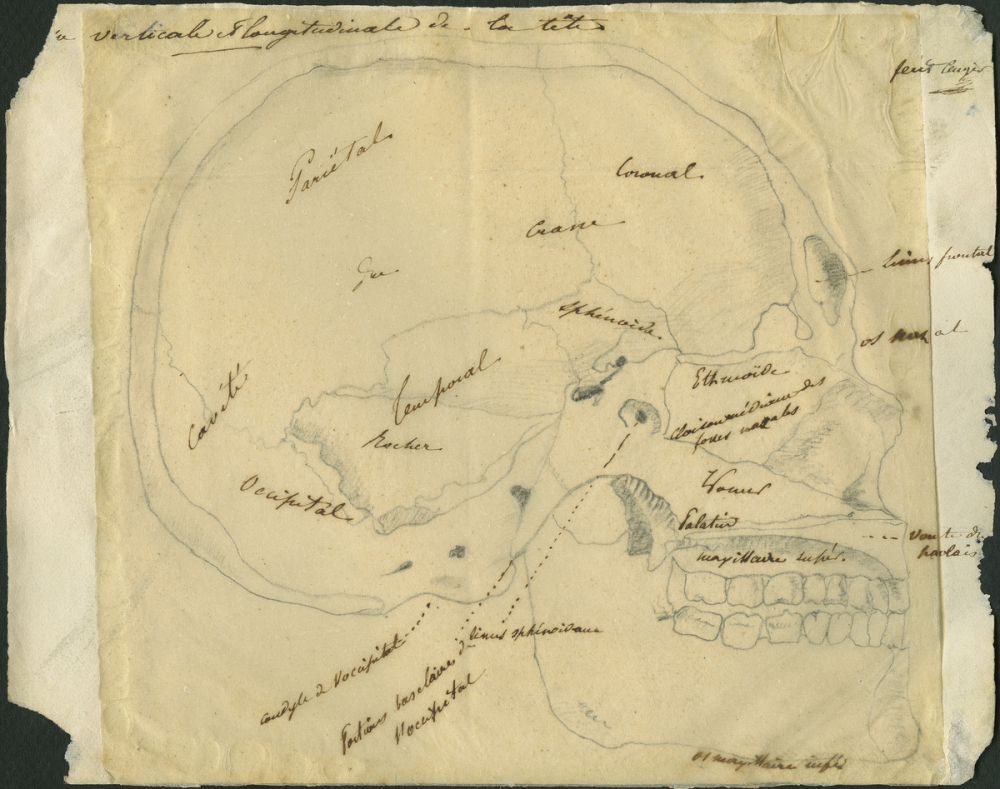 verticale et longitudinale de la tête
Pariétal
Coronal.
Crane
du
sinus frontal
sphénoïde.
os nasal
Ethmoïde
Cloison médiane des
fosses nasales
Cavité
temporal
Rocher
Occipital
Vomer
Palatin
voute du
palais
maxillaire supér.
condyle de l'occipital
sinus sphénoïdaux
Portions basilaires de
l'occipital
os maxillaire infér